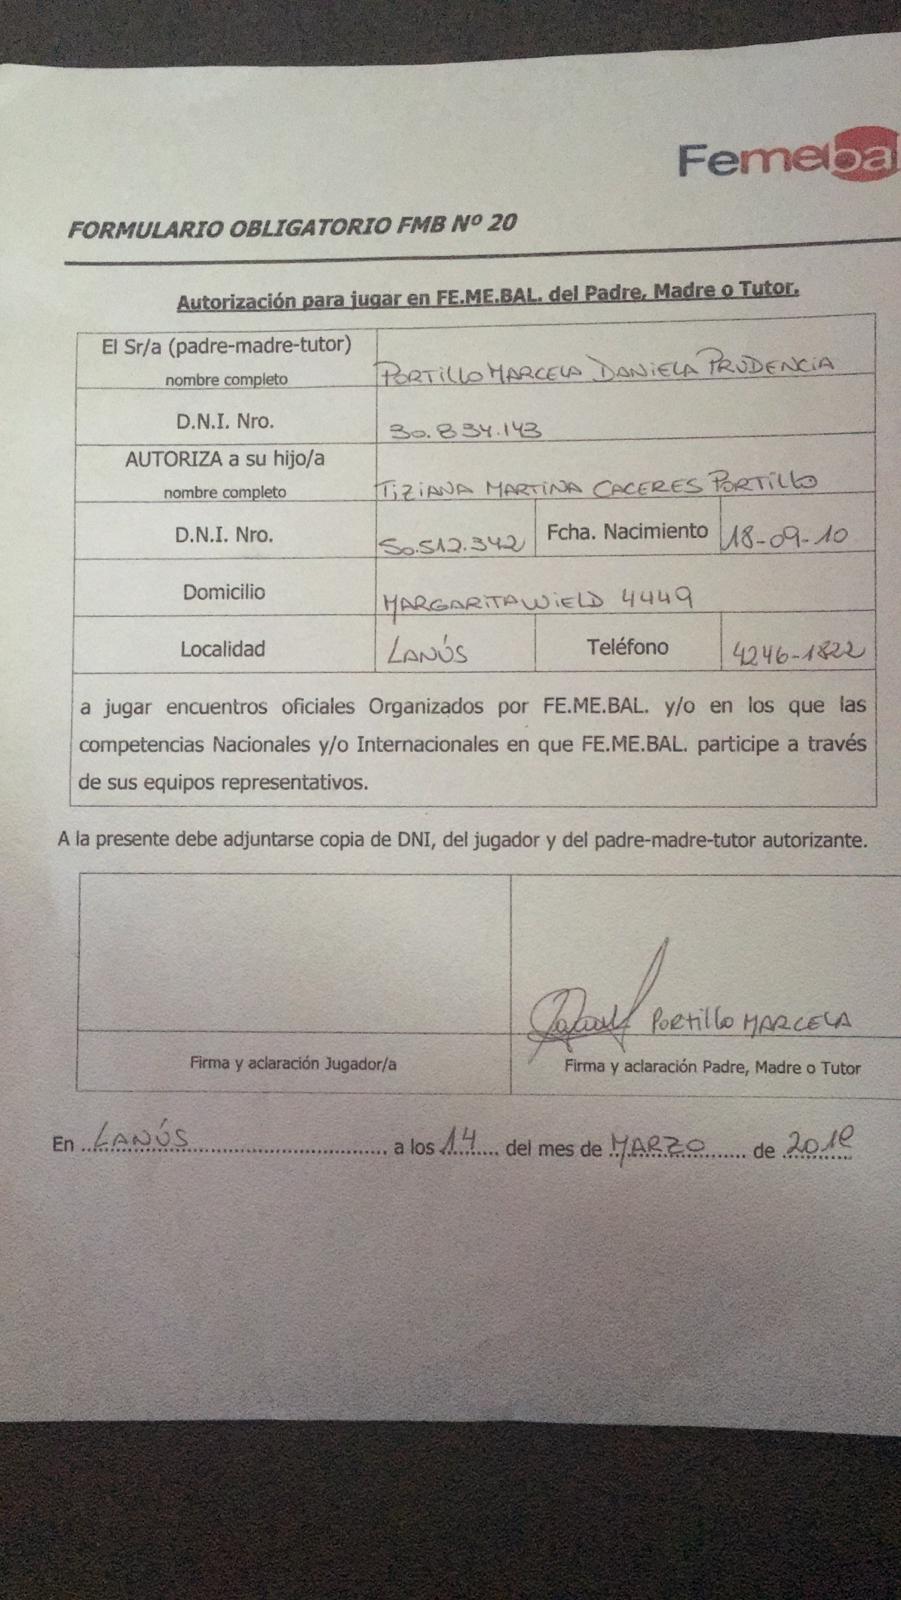 Femebal
FORMULARIO OBLIGATORIO FMB Nº 20
Autorización para jugar en FE.ME.BAL. del Padre, Madre o Tutor.
El Sr/a (padre-madre-tutor)
nombre completo
PORTILLO MARCELA DANIELA PRUDENCIA
D.N.I. Nro.
30.834.143
AUTORIZA a su hijo/a
nombre completo
TIZIANA MARTINA CACERES PORTILLO
D.N.I. Nro.
50.512.342
Fcha. Nacimiento
18-09-10
Domicilio
MARGARITA WIELD 4449
Localidad
LANÚS
Teléfono
4246-1822
a jugar encuentros oficiales Organizados por FE.ME.BAL. y/o en los que las
competencias Nacionales y/o Internacionales en que FE.ME.BAL. participe a través
de sus equipos representativos.
A la presente debe adjuntarse copia de DNI, del jugador y del padre-madre-tutor autorizante.
PORTILLO MARCELA
Firma y aclaración Jugador/a
Firma y aclaración Padre, Madre o Tutor
En LANÚS a los 14 del mes de MARZO de